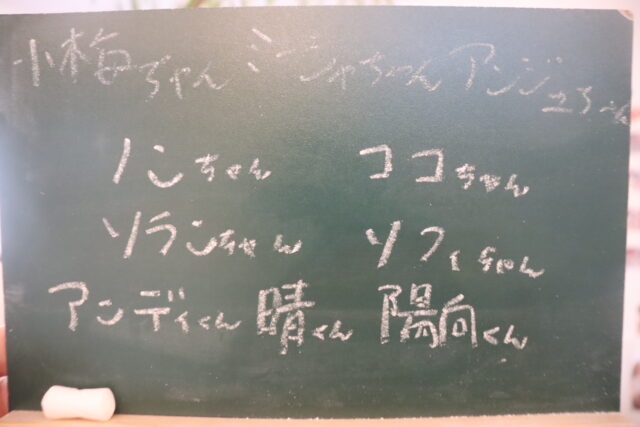 小梅ちゃん ミーシャちゃん アンジュちゃん
ノンちゃん ココちゃん
ソランちゃん ソフィちゃん
アンディくん 晴くん 陽向くん